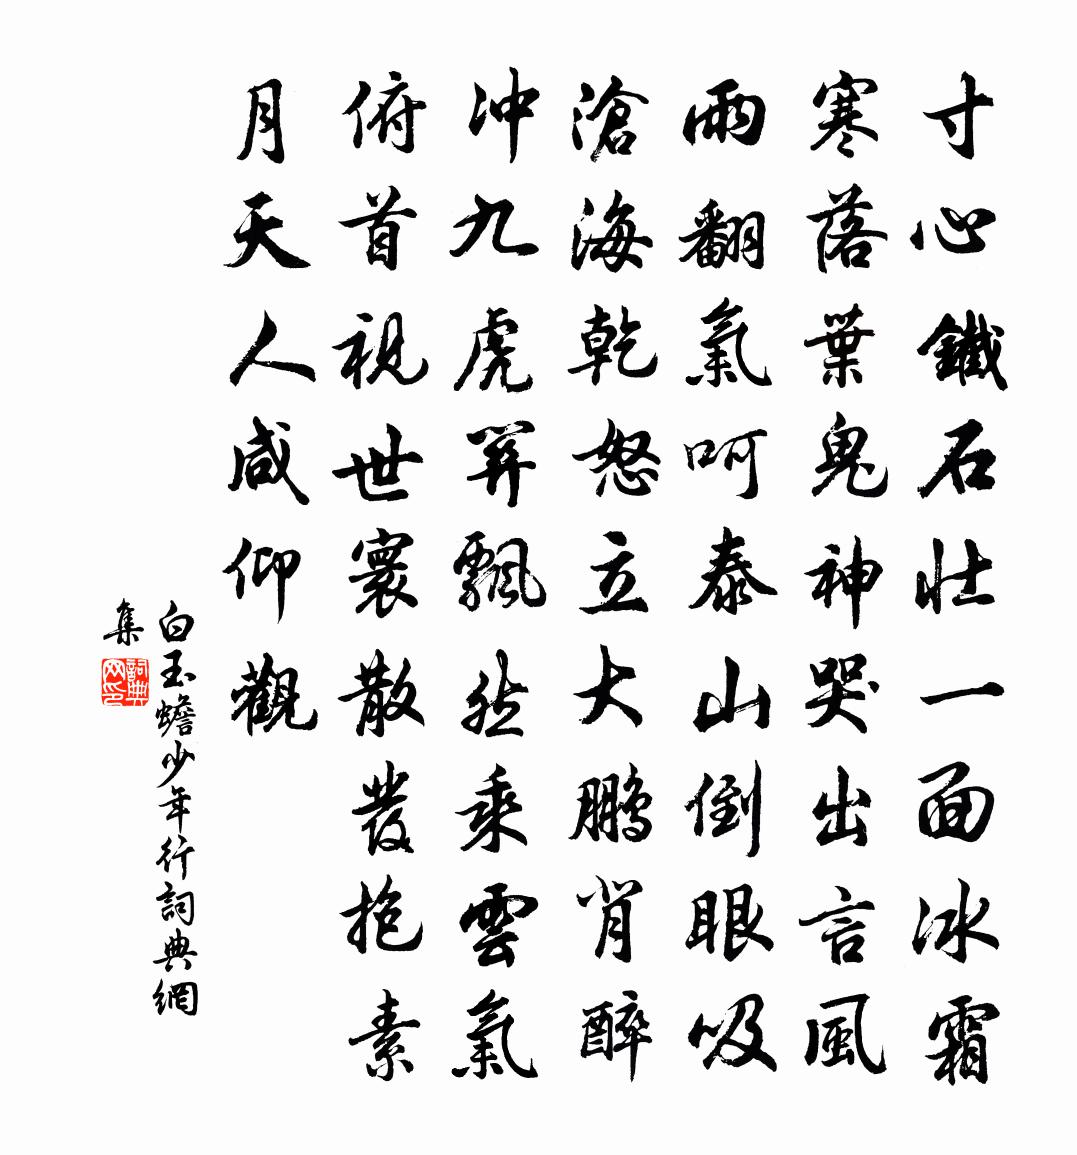 寸心鐵石壯一面冰霜
寒落葉鬼神哭出言風
雨翻氣呵泰山倒眼吸
滄海乾怒立大鵬背醉
冲九虎關飄然乘雲氣
俯首視世寰散發抱素
月天人咸仰觀
白玉蟾少年行詞典網
集
詞典网印